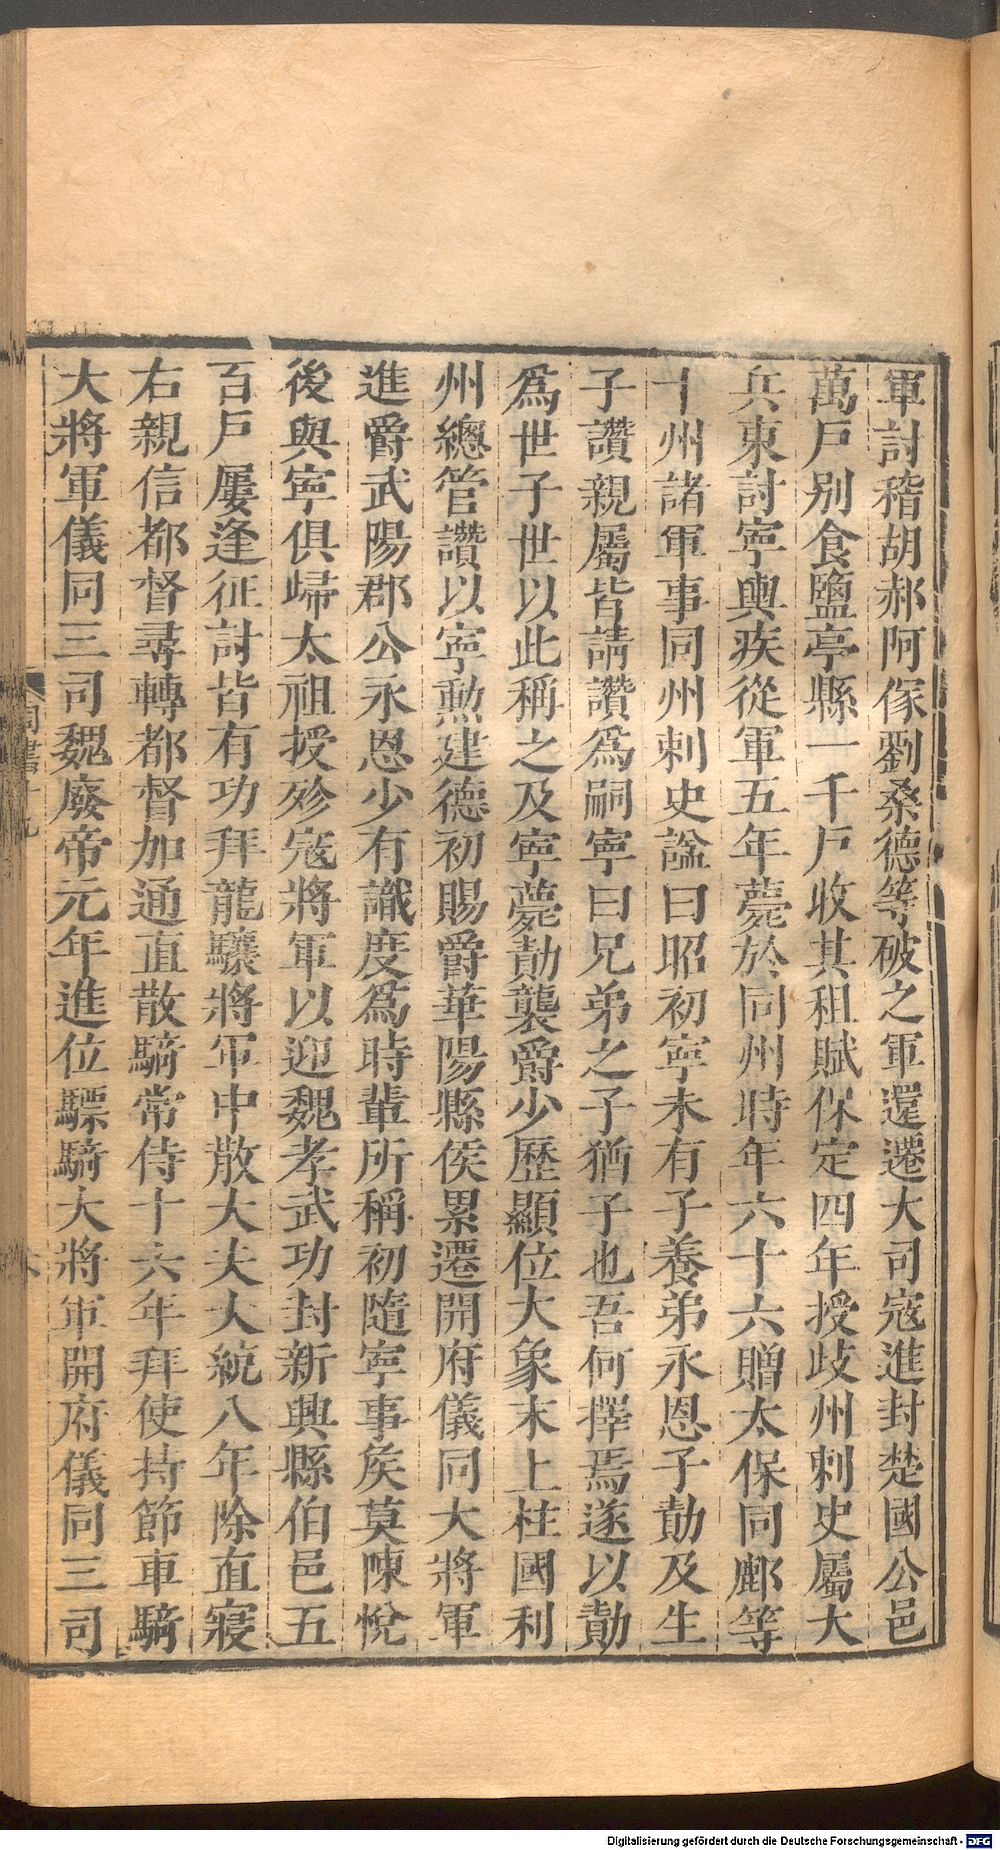 軍討稽胡郝阿傢劉桑德等破之軍還遷大司寇進封楚國公邑
萬戸别食鹽亭縣一千戸收其租賦保定四年授歧州刺史屬大
兵東討寜輿疾從軍五年薨於同州時年六十六贈太保同鄜等
十州諸軍事同州刺史諡曰昭初寜未有子養弟永恩子勣及生
子讚親屬皆請讚爲嗣寜曰兄弟之子猶子也吾何擇焉遂以勣
爲世子世以此稱之及寜薨勣襲爵少歷顯位大象末上柱國利
州總管讚以寜勲建德初賜爵華陽縣侯累遷開府儀同大將軍
進爵武陽郡公永恩少有識度爲時輩所稱初隨寜事侯莫陳悅
後與寜俱歸太祖授殄寇將軍以迎魏孝武功封新興縣伯邑五
百戸屢逢征討皆有功拜龍驤將軍中散大夫大統八年除直寢
右親信都督尋轉都督加通直散騎常侍十六年拜使持節車騎
大將軍儀同三司魏廢帝元年進位驃騎大將軍開府儀同三司
周書十九
Digitalisierung gefördert durch die Deutsche Forschungsgemeinschaft - DFG